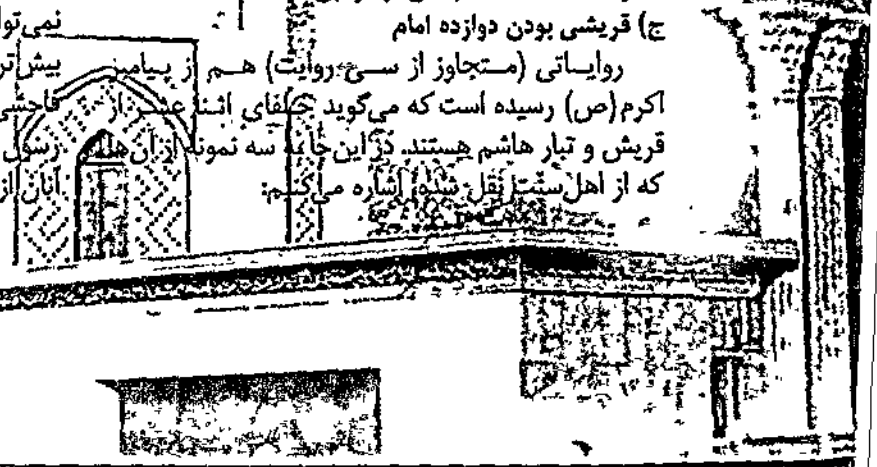 ج) قریشی بودن دوازده امام
روایـاتی (مـتجاوز از سـی روایت) هـم از پـیامبر
اکرم (ص) رسیده است که می‌گوید خلفای اثنا عشر از
قریش و تبار هاشم هستند. در این‌جا به سه نمونه از آن‌ها
که از اهل سنّت نقل شده، اشاره می‌کنیم:
بیش‌تر
رسول
آنان از